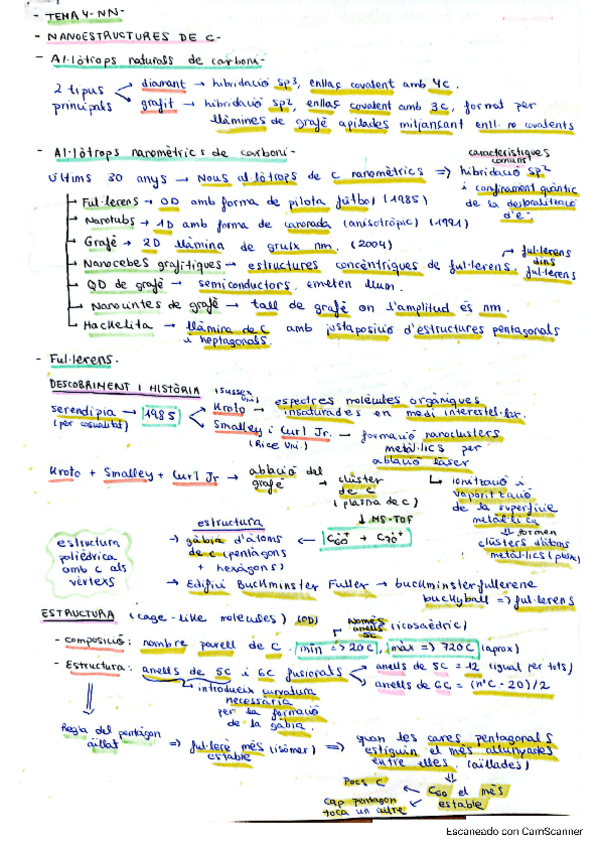 - TEMA 4-NN-
- NANOESTRUCTURES DE C-
- Al·lòtrops naturals de carboni-
2 tipus principals
diamant → hibridació sp3, enllaç covalent amb 4C.
grafit → hibridació sp2, enllaç covalent amb 3C, format per
làmines de grafè apilades mitjançant enll. no covalents
- Al·lòtrops nanomètrics de carboni-
característiques comuns
Últims 30 anys → Nous al·lòtrops de C nanomètrics => hibridació sp2
i confinament quàntic
de la deslocalització
d'e-
Ful·lerens → 0D amb forma de pilota fútbol (1985)
Nanotubs → 1D amb forma de canonada (anisotròpic) (1991)
Grafè → 2D làmina de gruix nm. (2004)
Nanocebes grafítiques → estructures concèntriques de ful·lerens.
ful·lerens dins ful·lerens
QD de grafè → semiconductors, emeten llum.
Nanocintes de grafè → tall de grafè on l'amplitud és nm.
Hackelita → làmina de C amb juxtaposició d'estructures pentagonals
i heptagonals.
- Ful·lerens.
DESCOBRIMENT I HISTÒRIA
(Sussex Uni)
serendipia → 1985
(per casualitat)
Kroto → espectres molècules orgàniques
insaturades en medi interestel·lar.
Smalley i Curl Jr. → formació nanoclusters
(Rice Uni.)
metàl·lics per
ablació làser
Kroto + Smalley + Curl Jr → ablació del grafè → clúster de C
(plasma de C)
ionització i
vaporització
de la superfície
metàl·lica
formen
clústers d'àtoms
metàl·lics
↓ MS-TOF
C60+ + C70+
estructura
gàbia d'àtoms
de C (pentàgons
+ hexàgons)
estructura
polièdrica
amb C als
vèrtexs
→ Edifici Buckminster Fuller → buckminsterfullerene
buckyball => ful·lerens
ESTRUCTURA (cage-like molecules) (0D)
Només anells 5C
(icosaèdric)
- Composició: nombre parell de C. min => 20C, màx => 720C (aprox)
- Estructura: anells de 5C i 6C fusionats
anells de 5C = 12 (igual per tots)
anells de 6C = (nºC - 20)/2
introdueix curvatura
necessària
per la formació
de la gàbia.
Regla del pentàgon
aïllat
=> ful·lerè més (isòmer)
estable
=> quan les cares pentagonals
estiguin el més allunyades
entre elles. (aïllades)
C60 el més
estable
Pocs C
cap pentagon
toca un altre
Escaneado con CamScanner